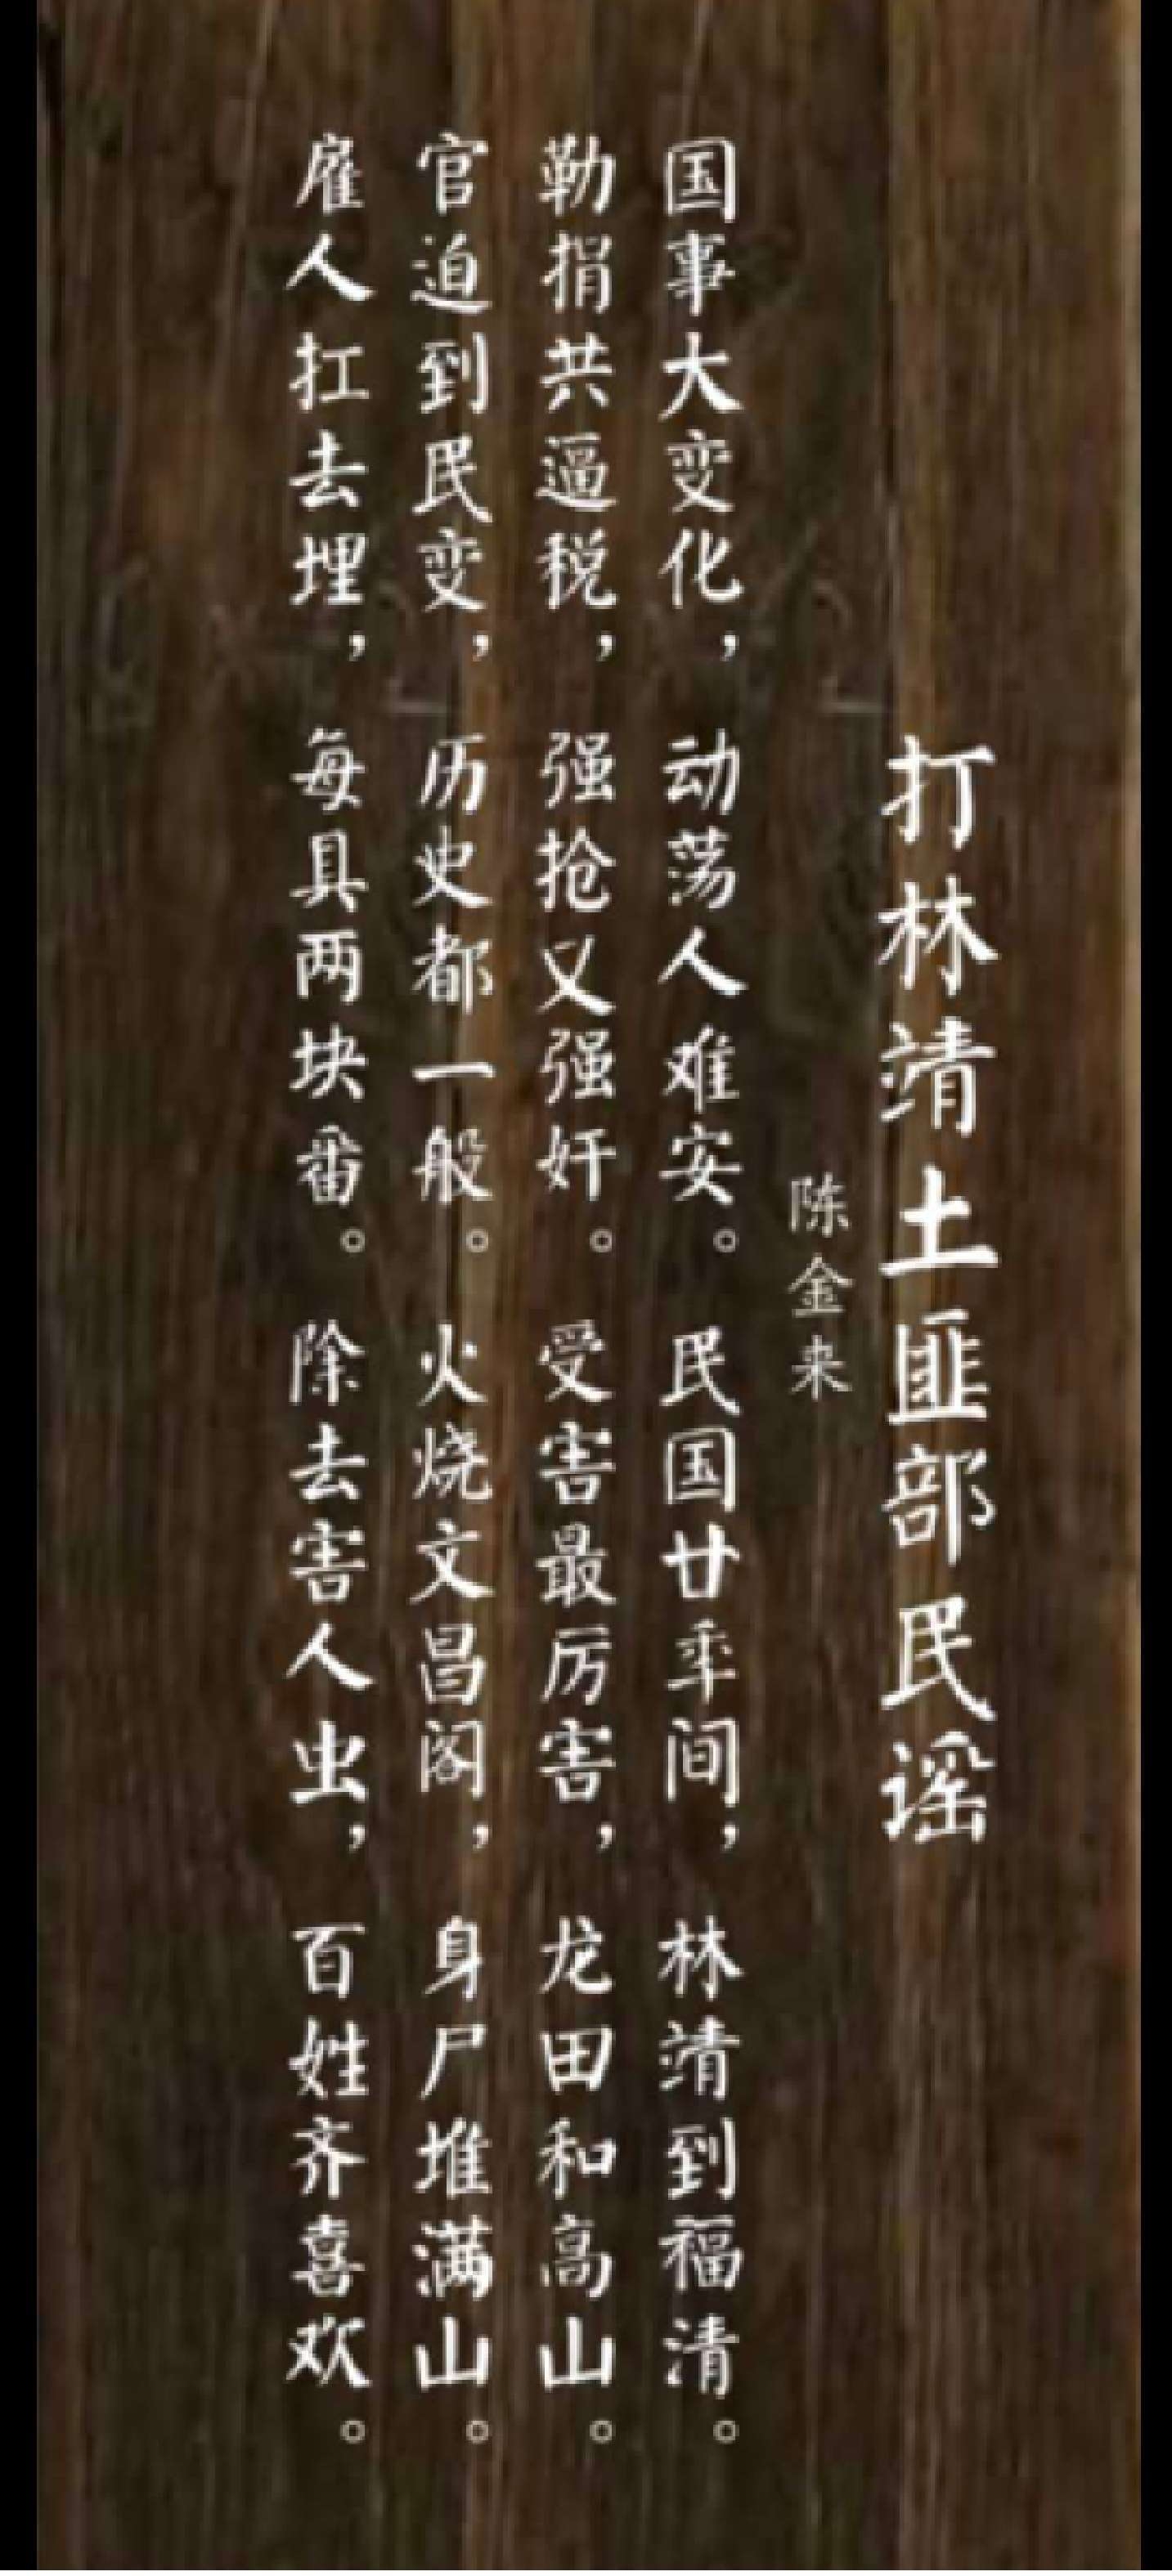 打林靖土匪部民谣
陈金来
国事大变化，动荡人难安。民国廿年间，林靖到福清。
勒捐共逼税，强抢又强奸。受害最厉害，龙田和高山。
官迫到民变，历史都一般。火烧文昌阁，身尸堆满山。
雇人扛去埋，每具两块番。除去害人虫，百姓齐喜欢。